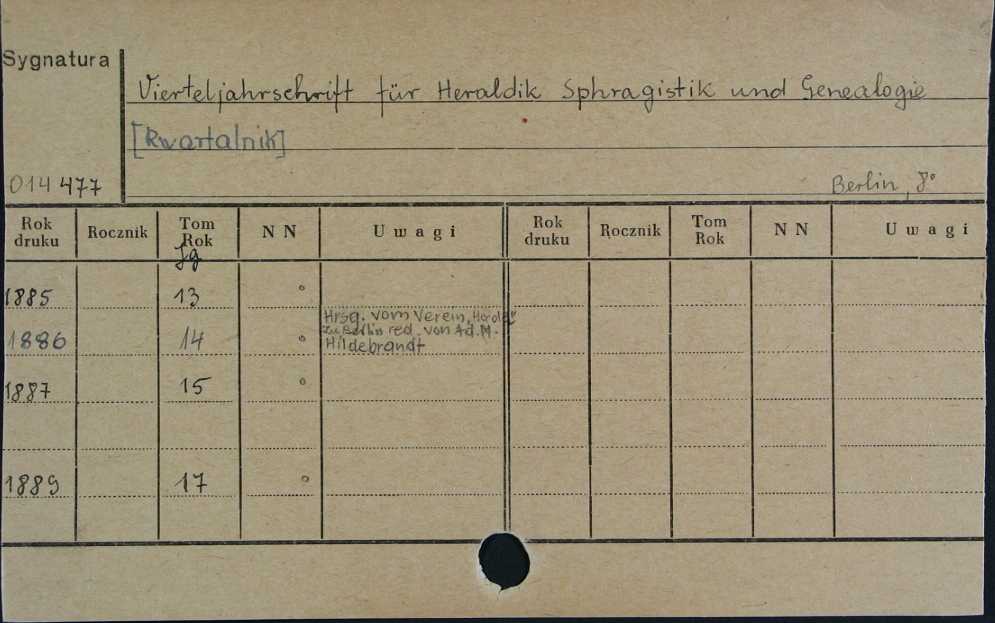 Sygnatura
Vierteljahrschrift für Heraldik Sphragistik und Genealogie
[kwartalnik]
014 477
Berlin, 8°
Rok druku Rocznik Tom Rok NN Uwagi Rok druku Rocznik Tom Rok NN Uwagi
Jg
1885 13 °
Hrsg. vom Verein „Herold"
zu Berlin red. von Ad. M.
1886 14 ° Hildebrandt
1887 15 °
1889 17 °